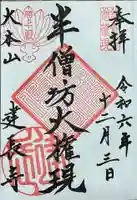 奉拝
令和六年
十二月三日
半僧坊大権現
大本山
建長寺